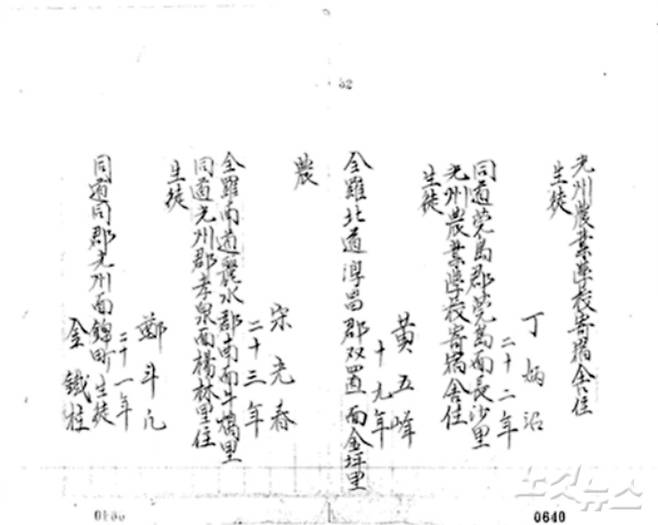 52
光州農業學校寄宿舍住
生徒
丁炳沼
二十二年
同道莞島郡莞島面長沙里
光州農業學校寄宿舍住
生徒
黃五峰
十九年
全羅北道淳昌郡双置面金坪里
農
宋光春
二十三年
全羅南道麗水郡南面牛鶴里
同道光州郡孝泉面楊林里住
生徒
鄭斗凡
二十一年
同道同郡光州面錦町 生徒
金鐵柱
0640
노컷뉴스